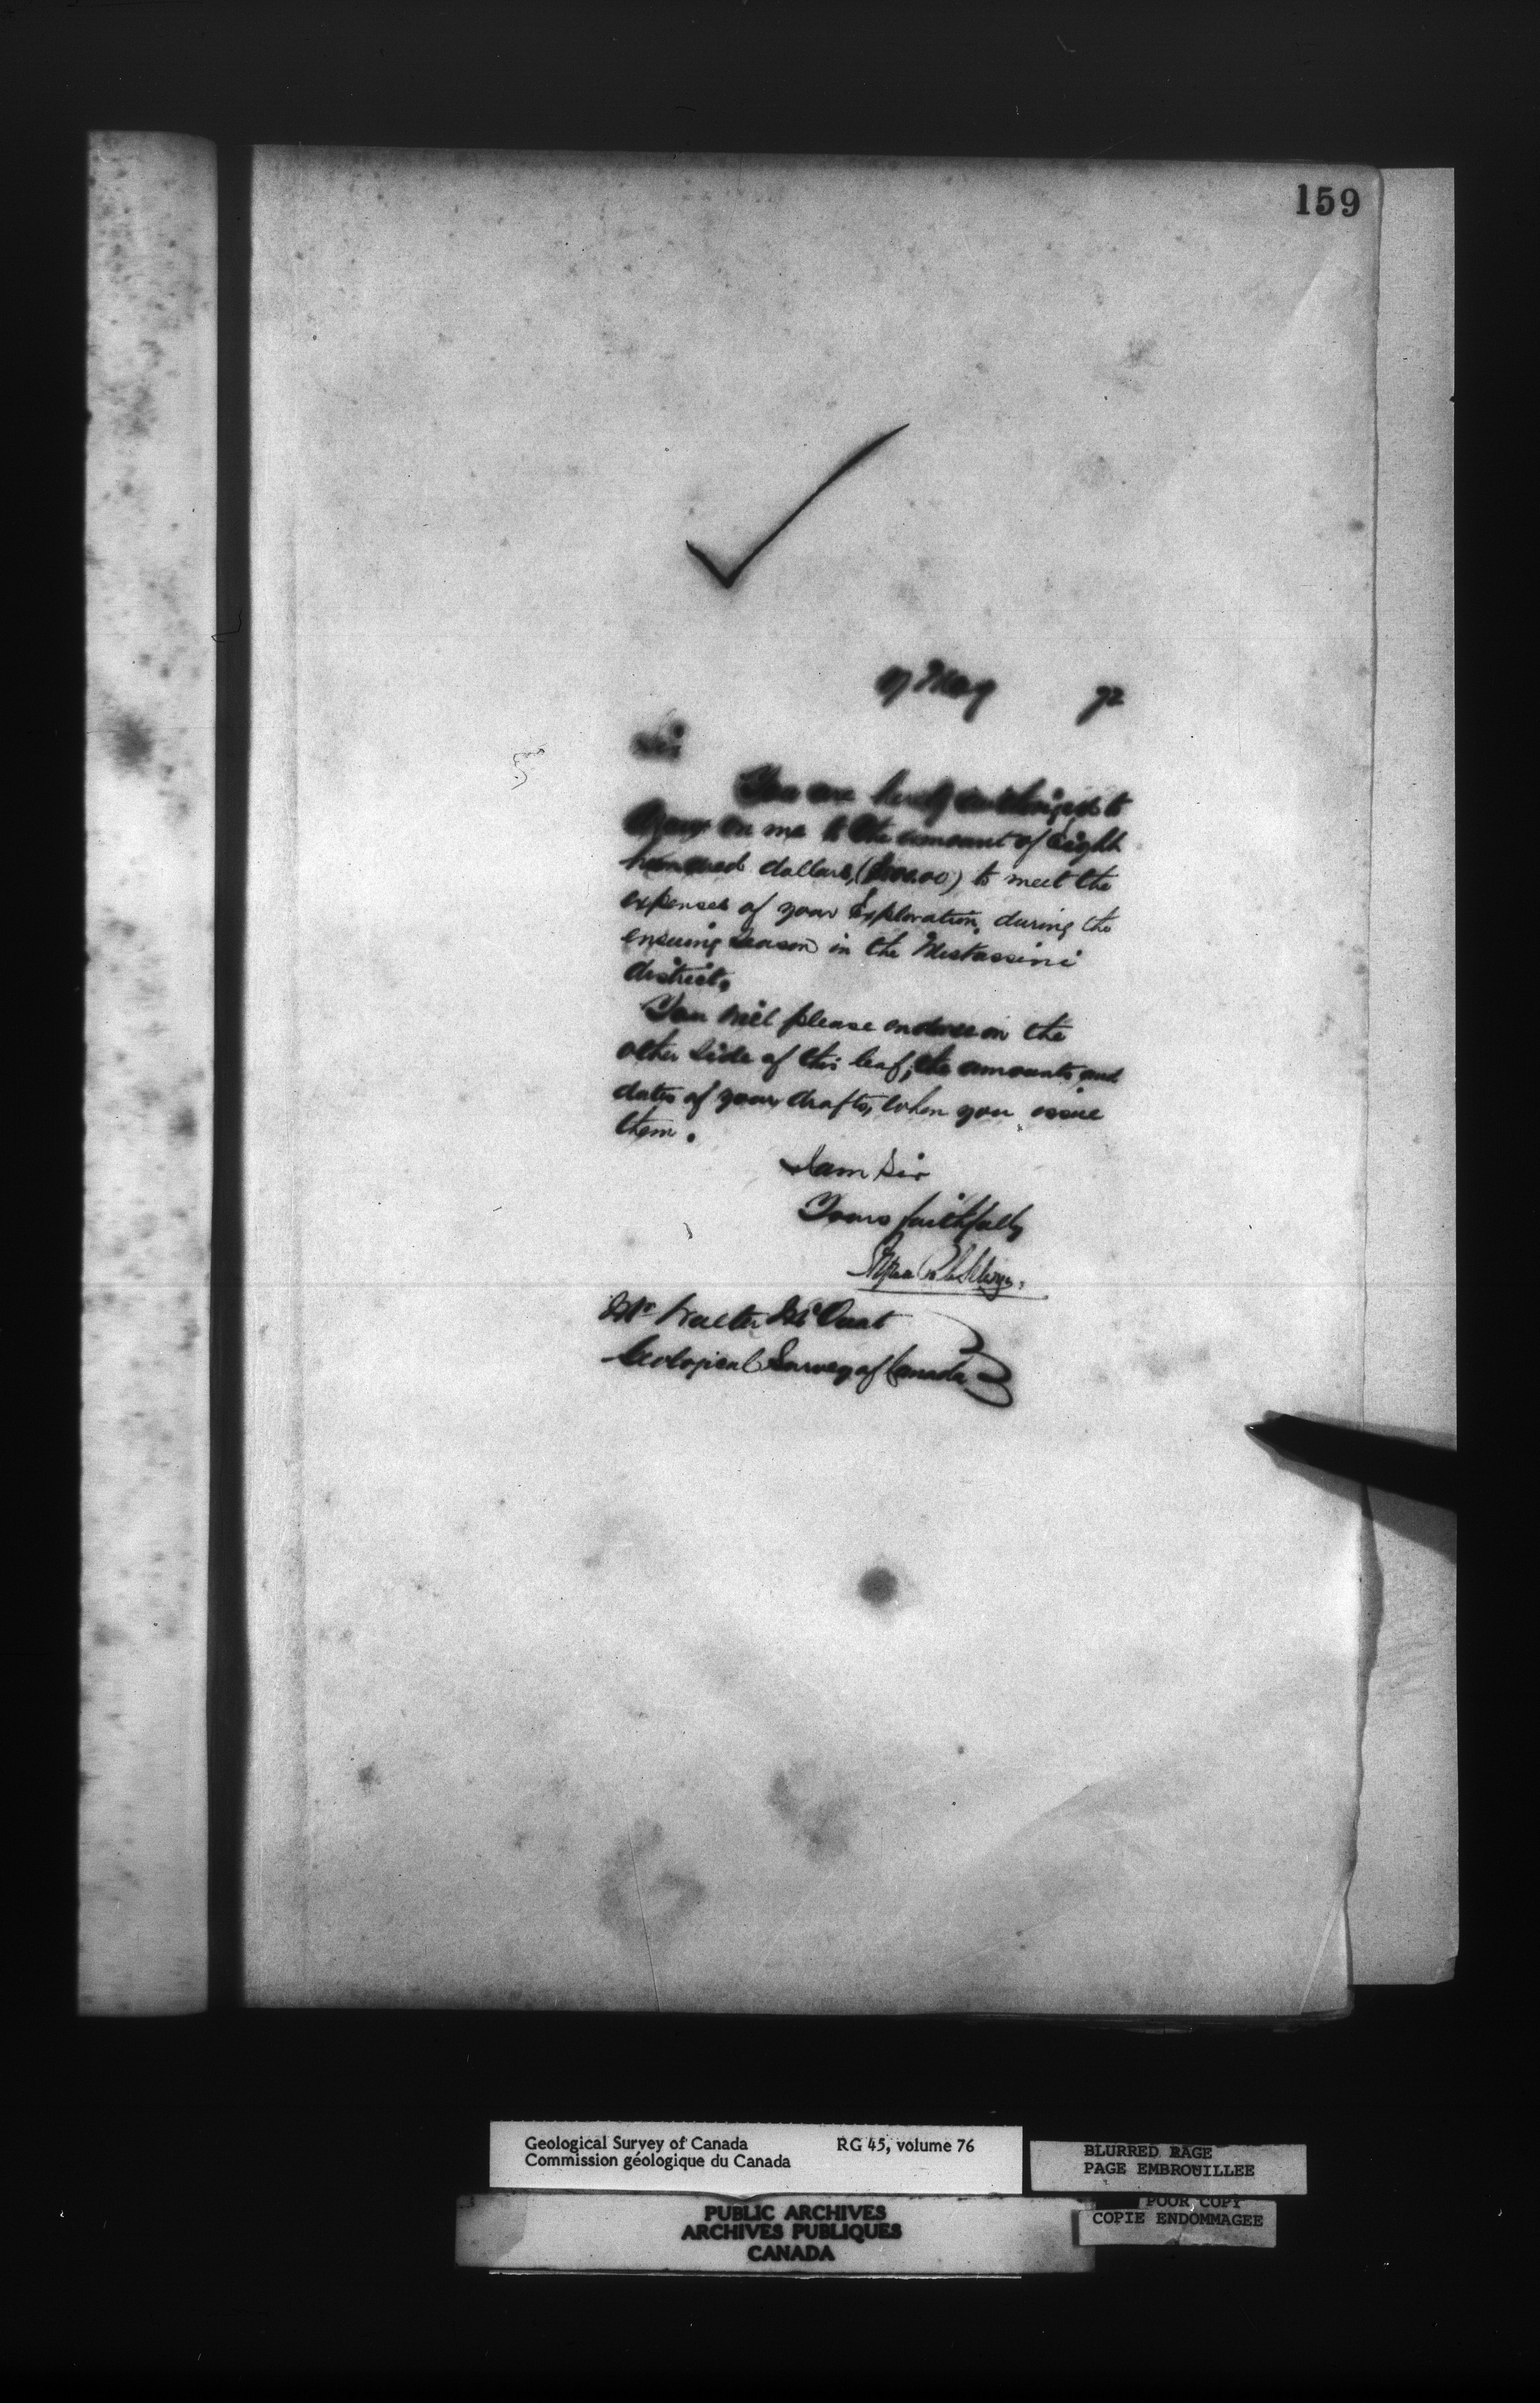 159
17 May 72
Sir
You are hereby authorized to
draw on me to the amount of Eight
hundred dollars, ($800.00) to meet the
expenses of your Exploration, during the
ensuing Season in the Mistassini
district.
You will please endorse on the
other side of this leaf, the amounts and
dates of your drafts, when you issue
them.
I am Sir
Yours faithfully
Alfred R C Selwyn.
Mr Walter McOuat
Geological Survey of Canada
Geological Survey of Canada RG 45, volume 76
Commission géologique du Canada
BLURRED PAGE
PAGE EMBROUILLEE
POOR COPY
COPIE ENDOMMAGEE
PUBLIC ARCHIVES
ARCHIVES PUBLIQUES
CANADA